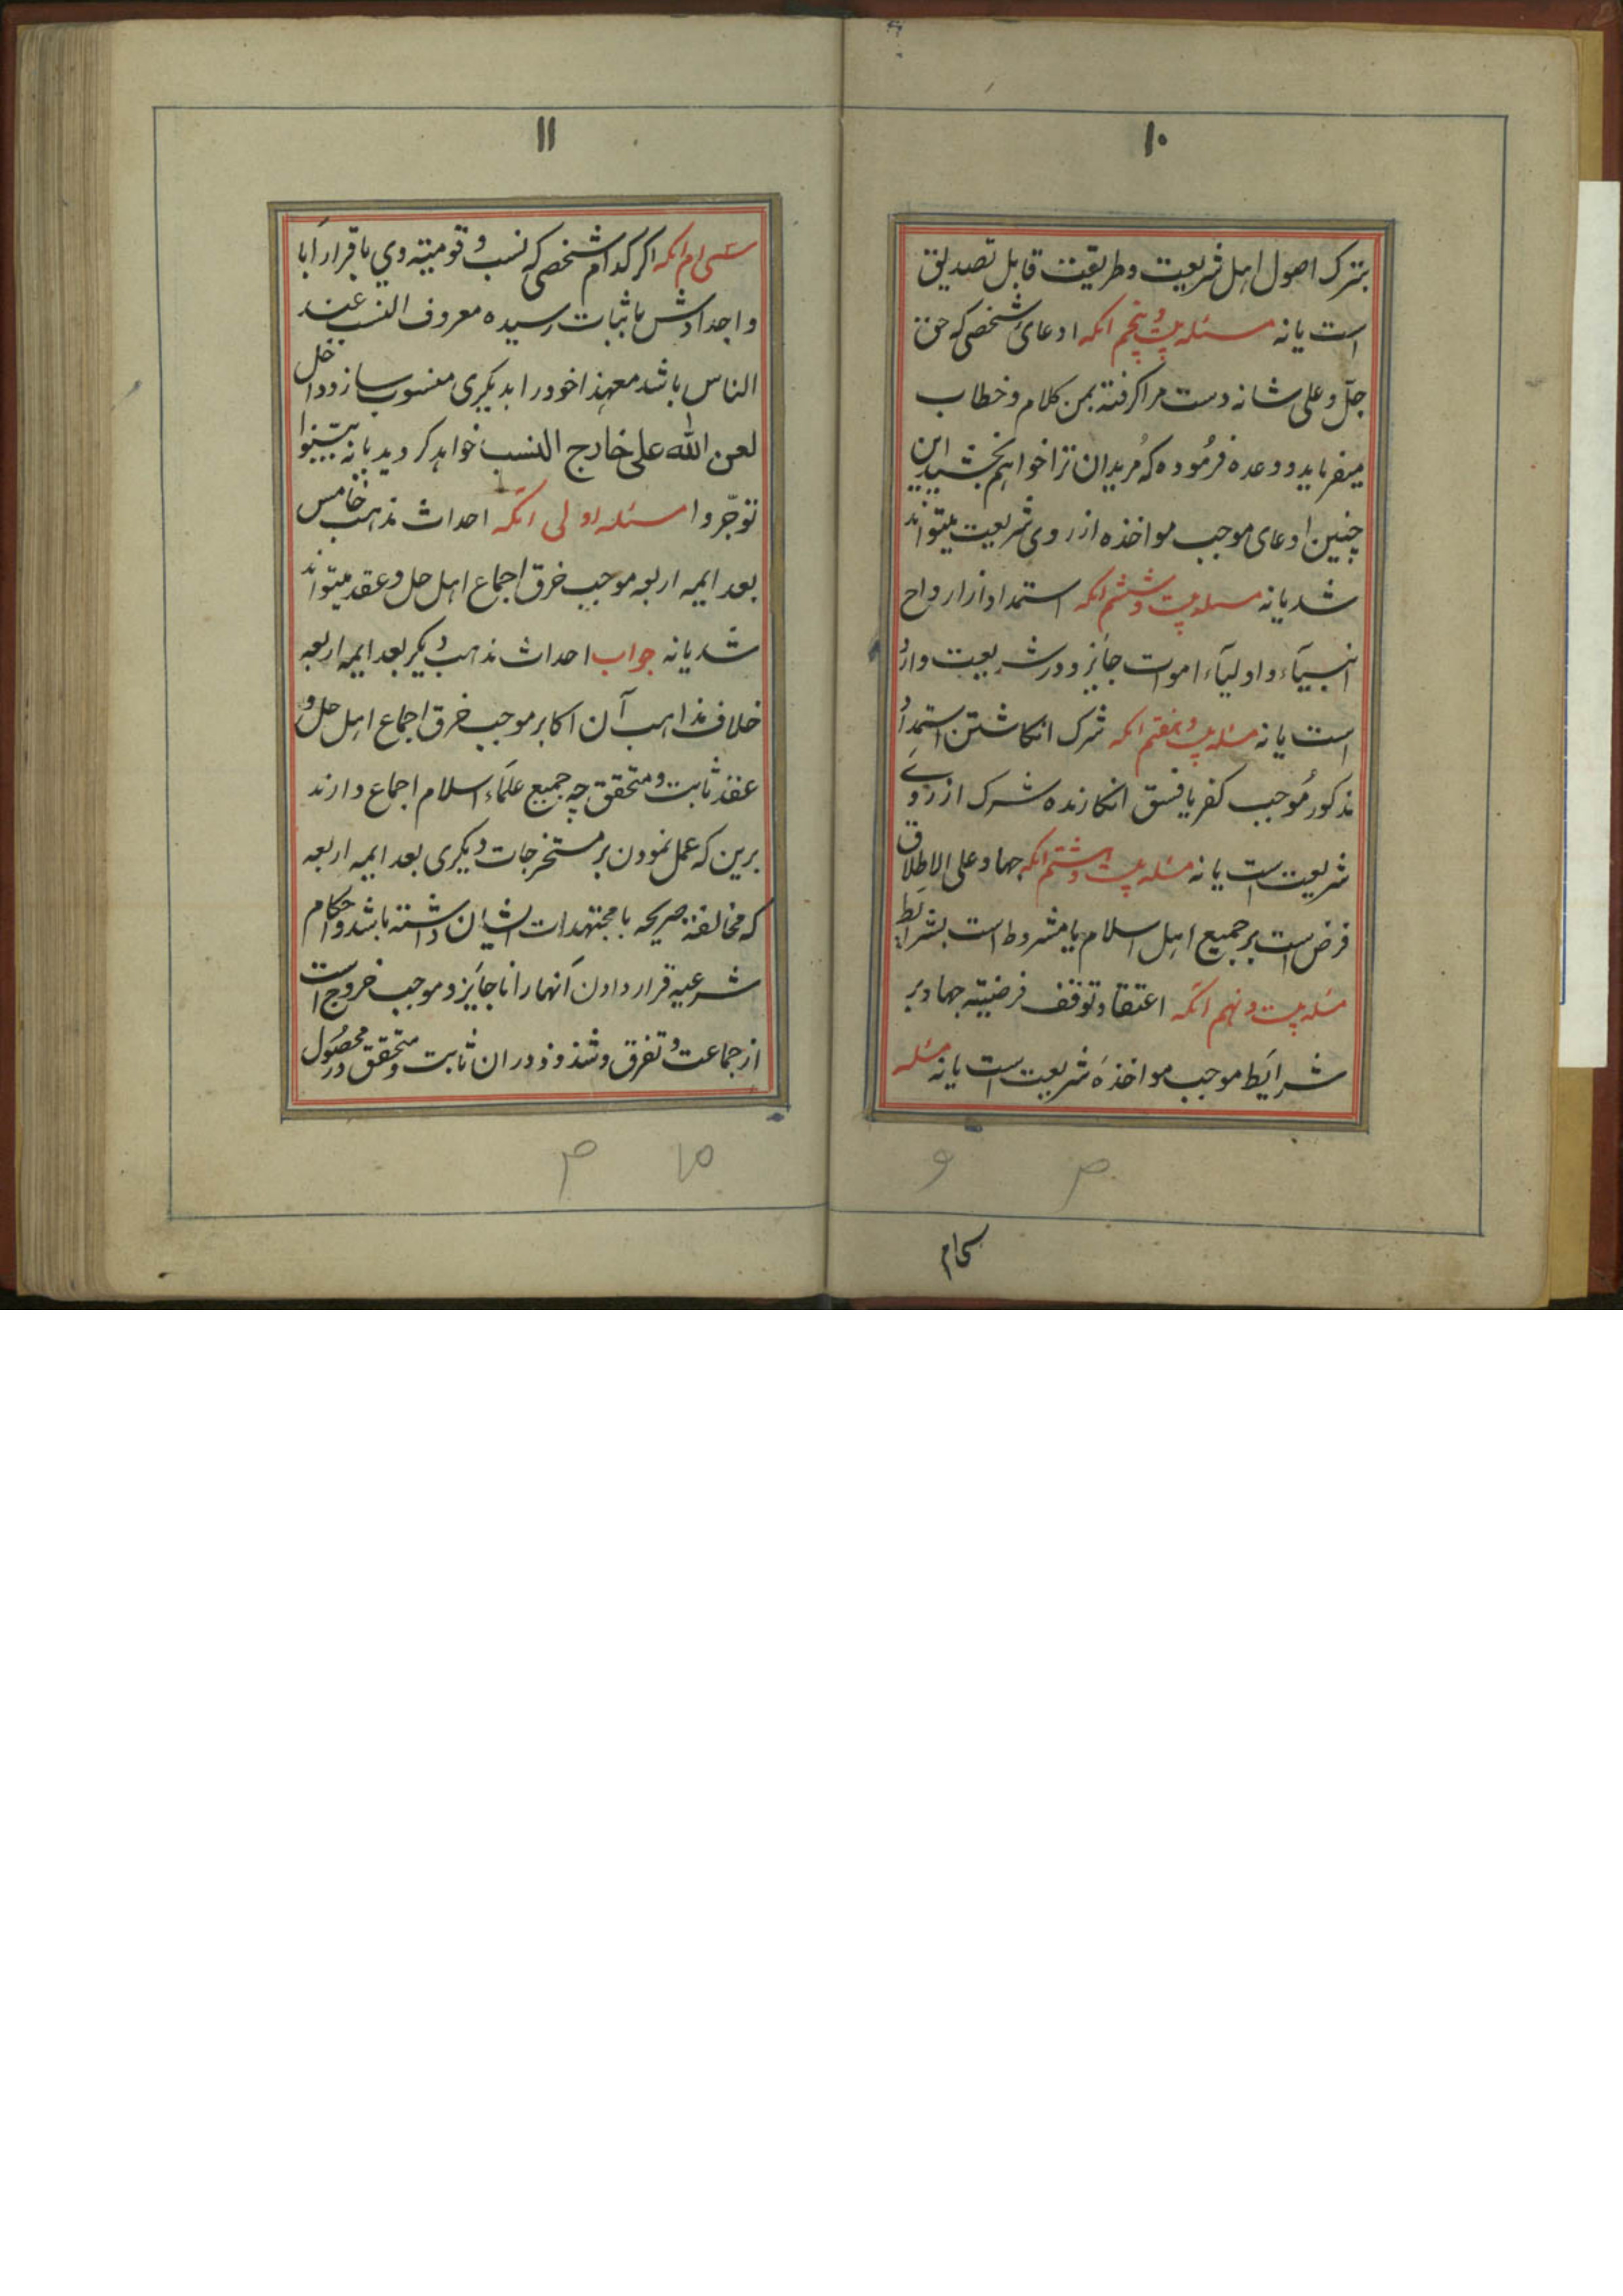 ۱۰
بترک اصول اهل شریعت و طریقت قابل تصدیق
است یا نه مسئله بیست و پنجم انکه ادعائ شخصی که حق
جلّ و علی شانه دست مرا کرفته بمن کلام و خطاب
میفرماید و وعده فرمُوده که مُریدان ترا خواهم بخشید این
چنین ادعای موجب مواخذه از روی شریعت میتواند
شد یا نه مسئله بیست و ششم انکه استمداد از ارواح
انبیآء و اولیآء اموات جایز و در شریعت وارد
است یا نه مسئله بیست و هفتم انکه شرک انکاشتن استمداد
مذکور مُوجب کفر یا فسق انکارنده شرک از روے
شریعت است یا نه مسئله بیست و هشتم انکه جهاد علی الاطلاق
فرض است بر جمیع اهل اسلام یا مشروط است بشرایط
مسئله بیست و نهم انکه اعتقاد توقف فرضیته جهاد بر
شرایط موجب مواخذهٔ شریعت است یا نه مسئله
سی‌ام
۱۱
سی‌ام انکه اکر کدام شخصی که نسب و قومیته وی باقرار ابا
و اجدادش باثبات رسیده معروف النسب عند
الناس باشد معهذا خود را بدیکری منسوب سازد داخل
لعن الله علی خارج النسب خواهد کردید یا نه بیّنوا
توجّروا مسئله اولی انکه احداث مذهب خامس
بعد ایمه اربعه موجب خرق اجماع اهل حل و عقد میتواند
شد یا نه جواب احداث مذهب دیکر بعد ایمه اربعه
خلاف مذاهب آن اکابر موجب خرق اجماع اهل حل و
عقد ثابت و متحقق چه جمیع علمآء اسلام اجماع دارند
برین که عمل نمودن بر مستخرجات دیکری بعد ایمه اربعه
که مخالفته صریحه با مجتهدات ایشان داشته باشد و احکام
شرعیه قرار دادن آنها را ناجایز و موجب خروج است
از جماعت و تفرق و شذوذ در ان ثابت و متحقق در محصُول